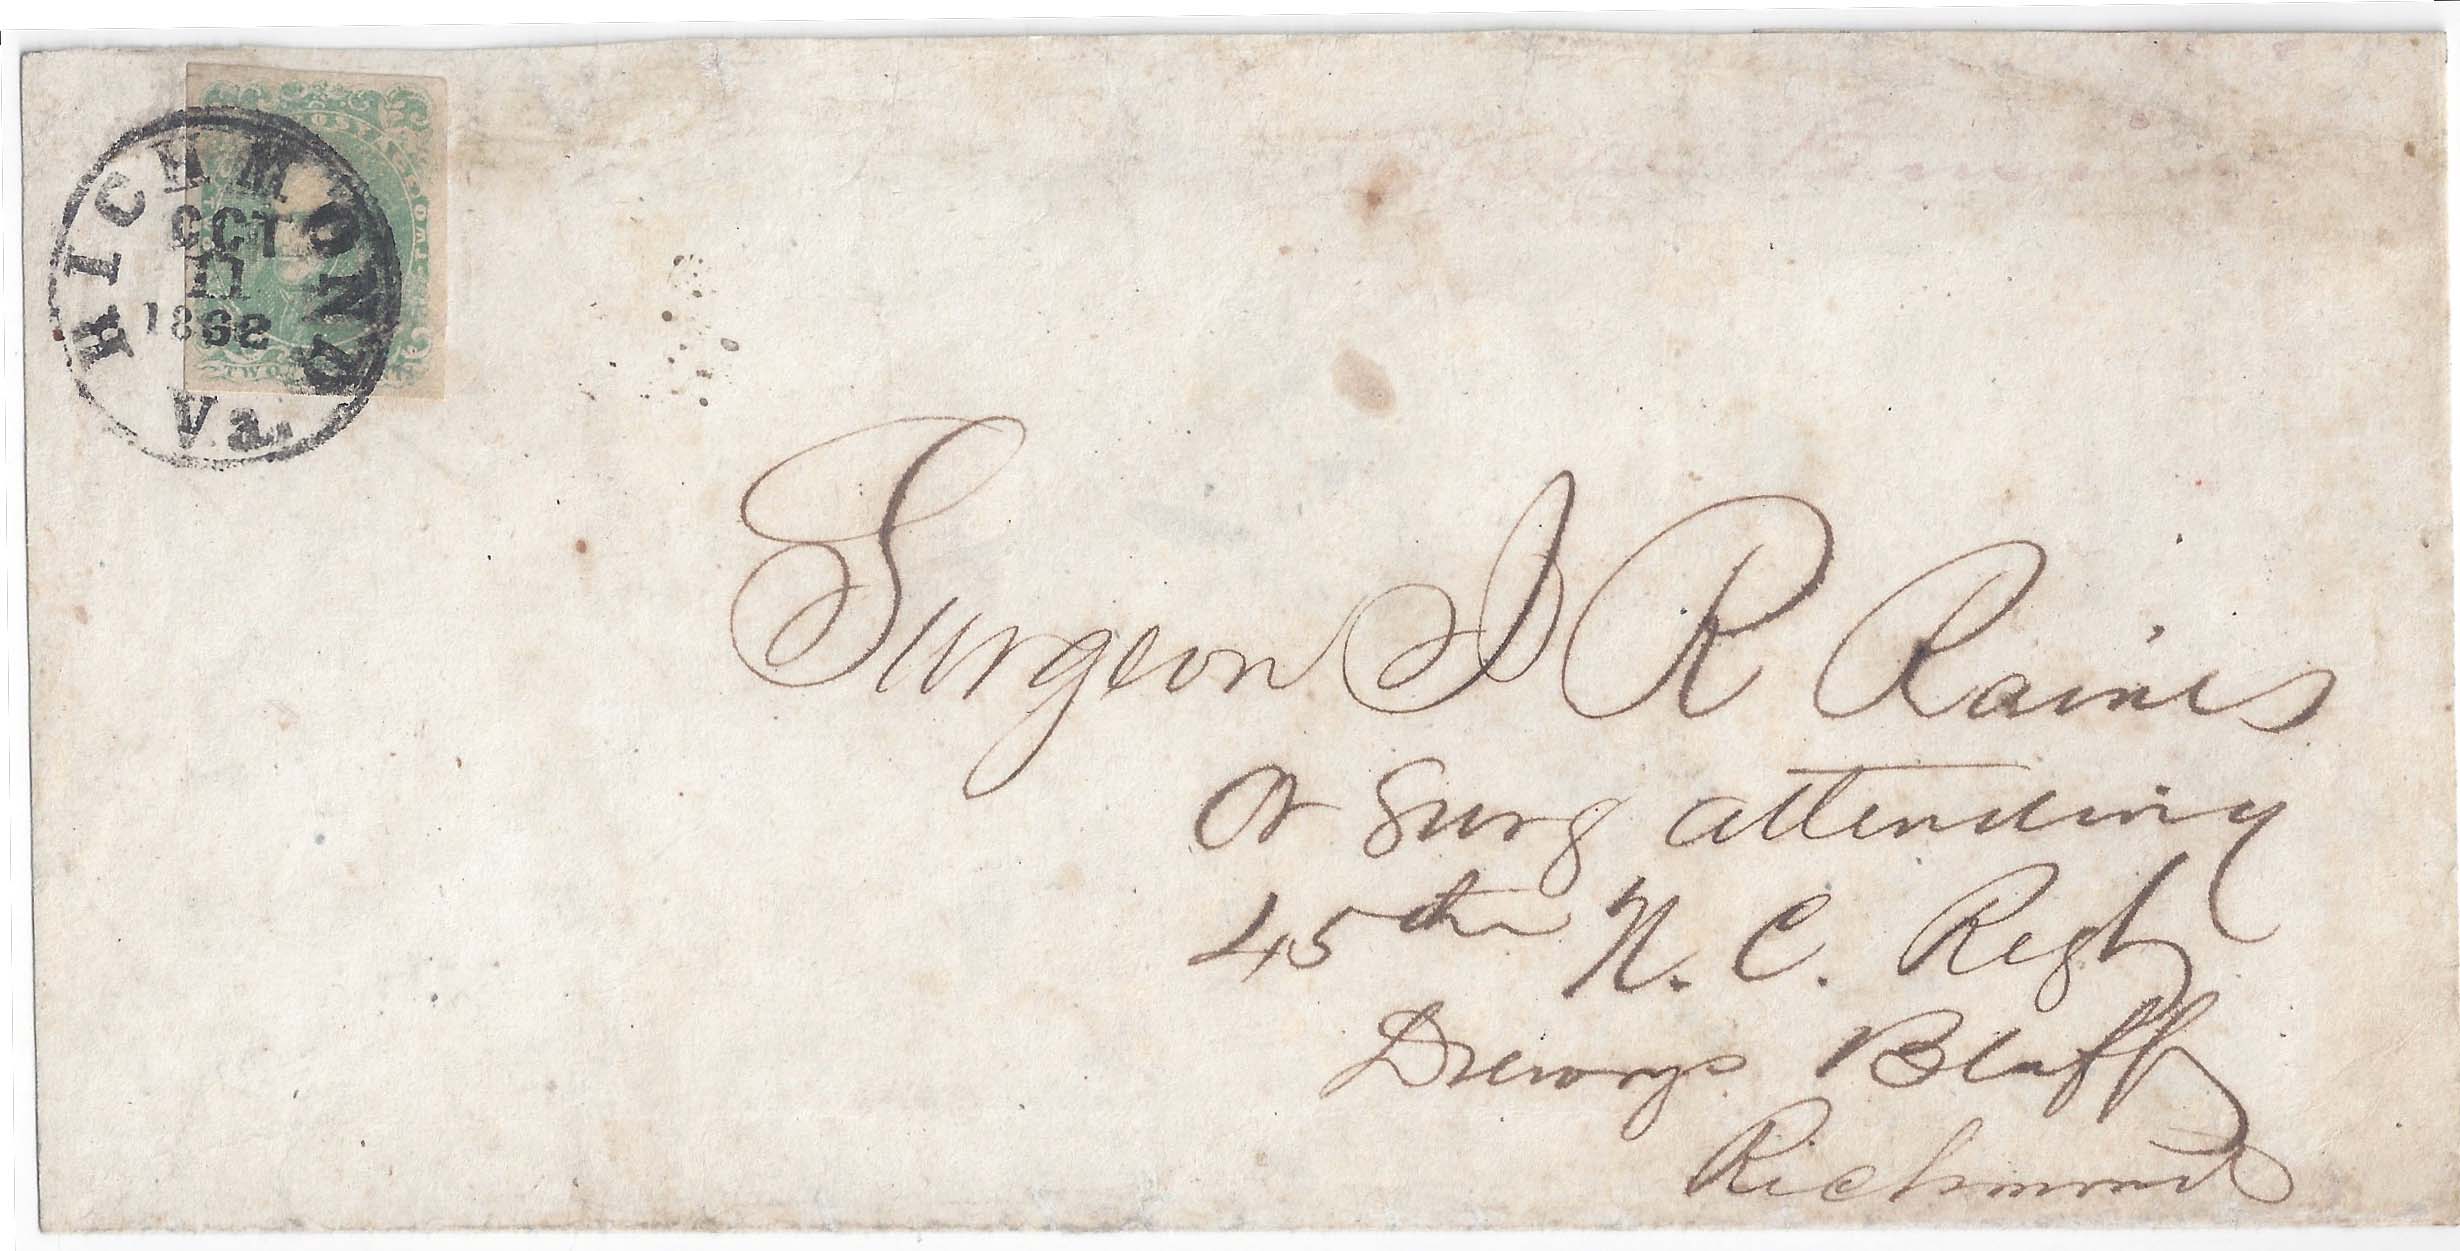 RICHMOND
OCT
11
1862
Va.
TWO
Surgeon J R Raines
Or Surg attending
45th N. C. Regt
Drewrys Bluff
Richmond